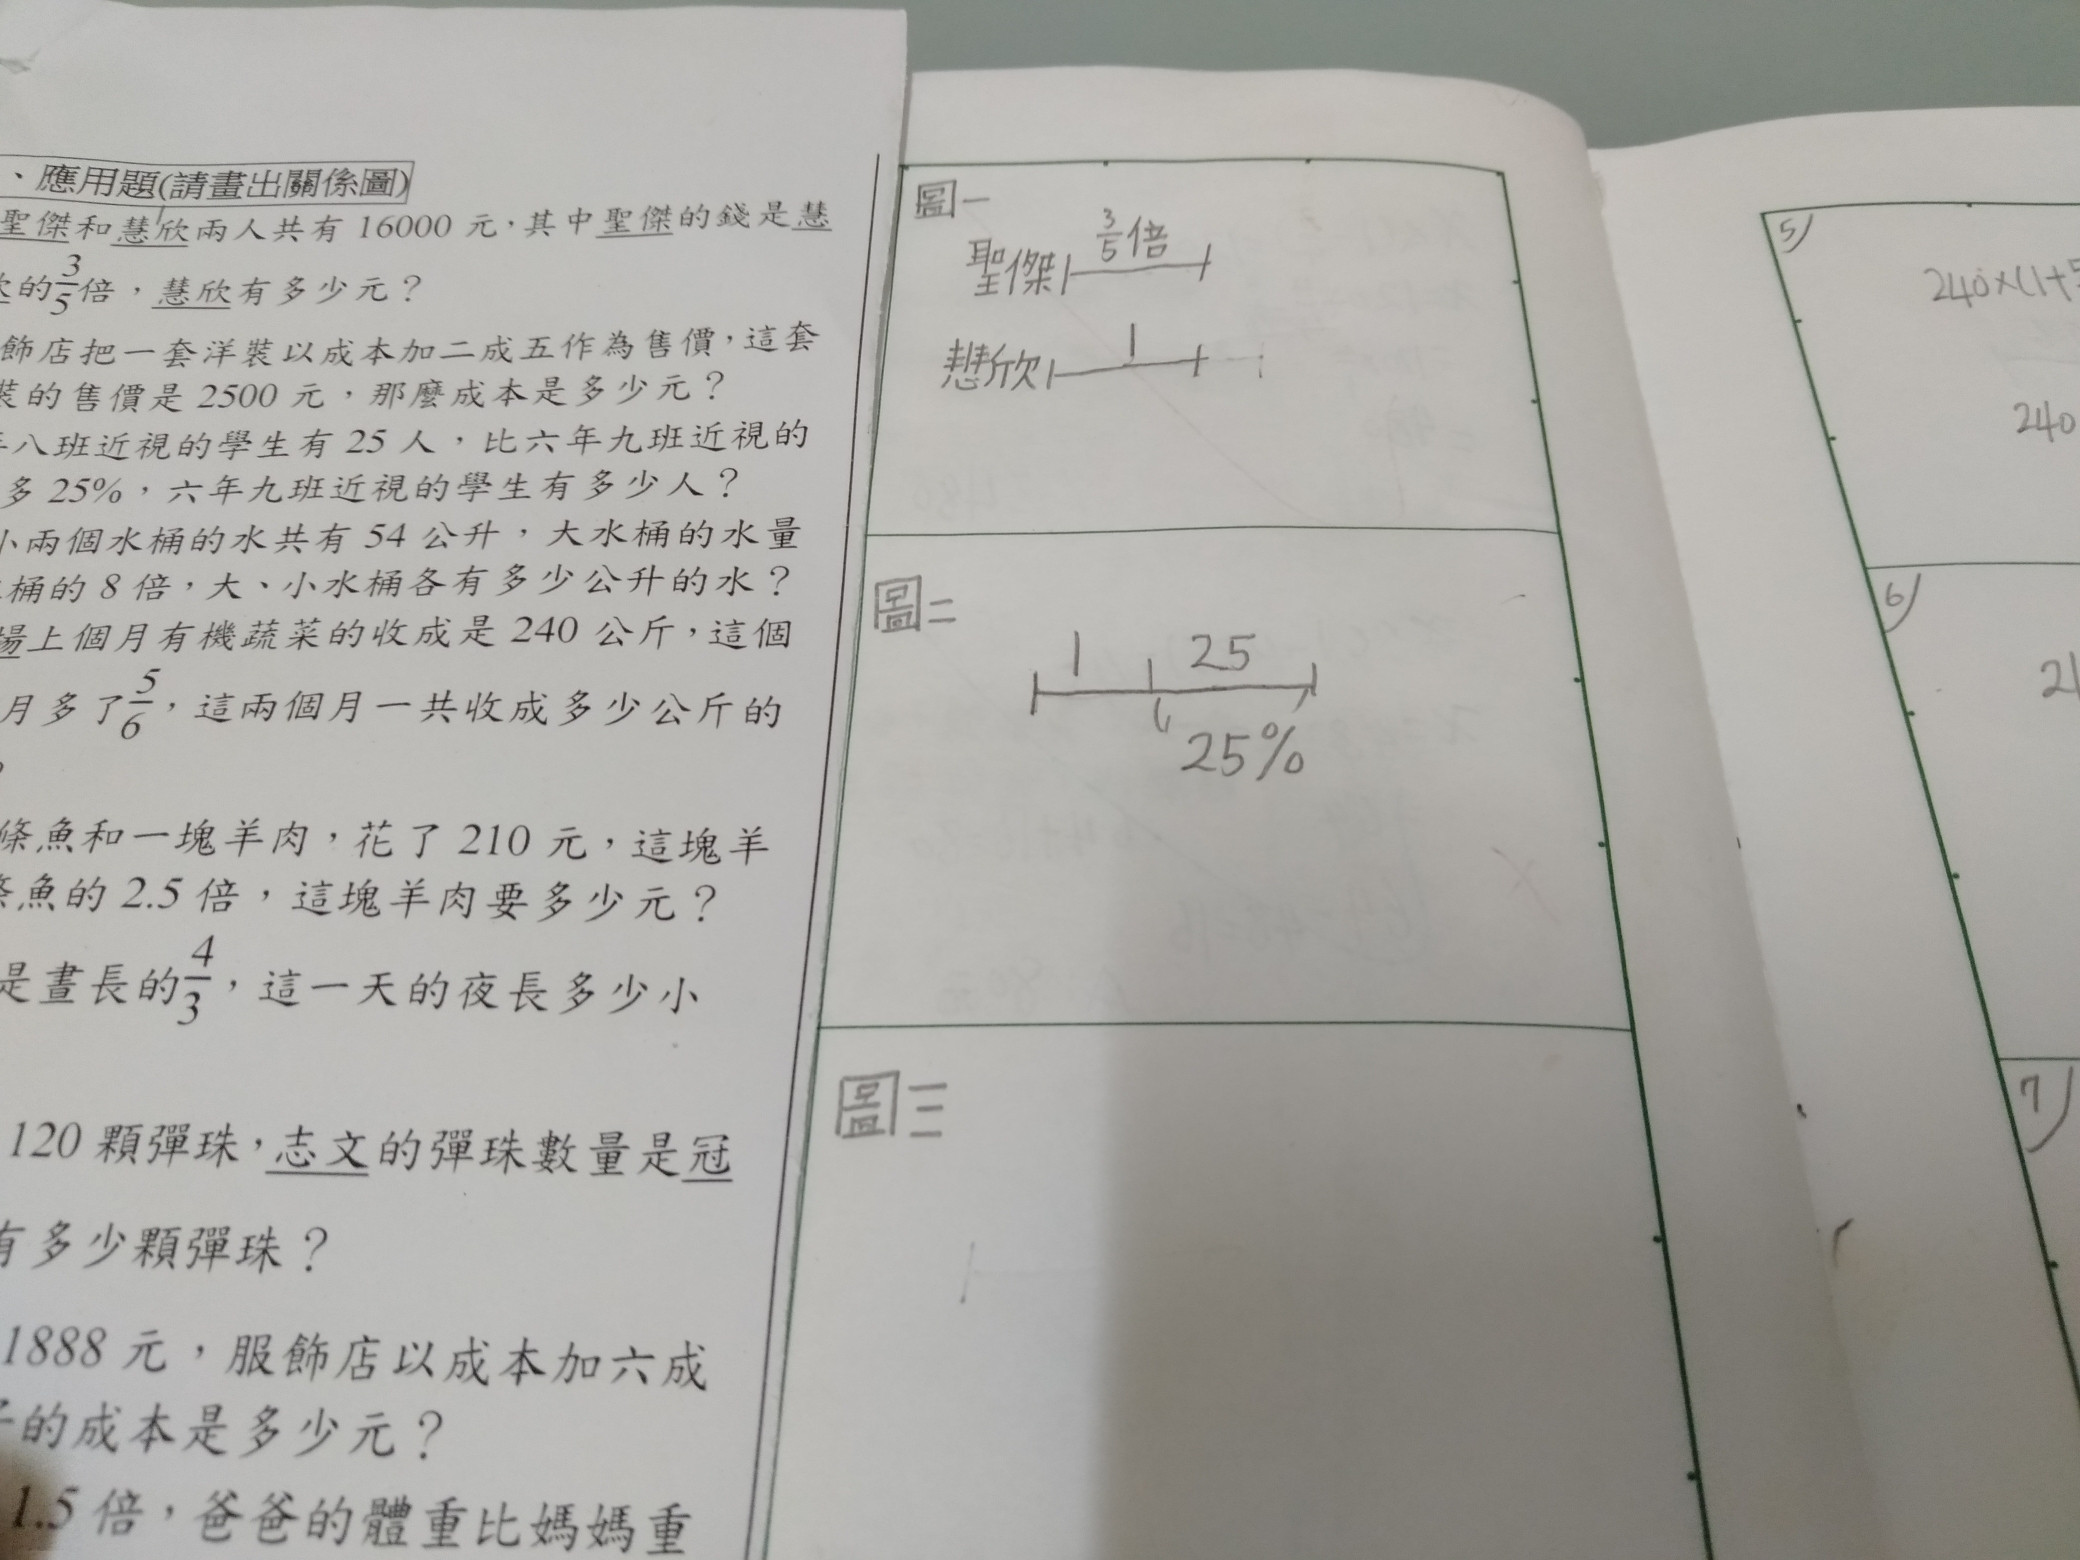 、應用題(請畫出關係圖)
聖傑和慧欣兩人共有 16000 元，其中聖傑的錢是慧
的3/5倍，慧欣有多少元？
飾店把一套洋裝以成本加二成五作為售價，這套
裝的售價是 2500 元，那麼成本是多少元？
八班近視的學生有 25 人，比六年九班近視的
多 25%，六年九班近視的學生有多少人？
小兩個水桶的水共有 54 公升，大水桶的水量
桶的 8 倍，大、小水桶各有多少公升的水？
場上個月有機蔬菜的收成是 240 公斤，這個
月多了5/6，這兩個月一共收成多少公斤的
？
條魚和一塊羊肉，花了 210 元，這塊羊
條魚的 2.5 倍，這塊羊肉要多少元？
是晝長的4/3，這一天的夜長多少小
120 顆彈珠，志文的彈珠數量是冠
有多少顆彈珠？
1888 元，服飾店以成本加六成
的成本是多少元？
1.5 倍，爸爸的體重比媽媽重
圖一
3/5倍
聖傑
1
慧欣
圖二
1 25
25%
圖三
5)
240×(1+5
240
6)
21
7)